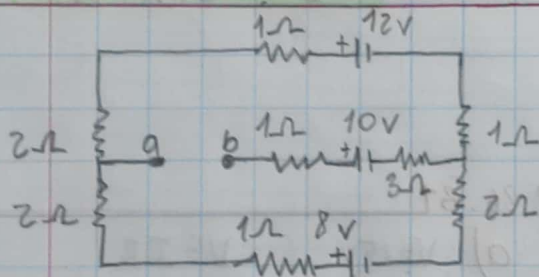 1Ω 12V
2Ω a b 1Ω 10V 1Ω
3Ω
2Ω 2Ω
1Ω 8V